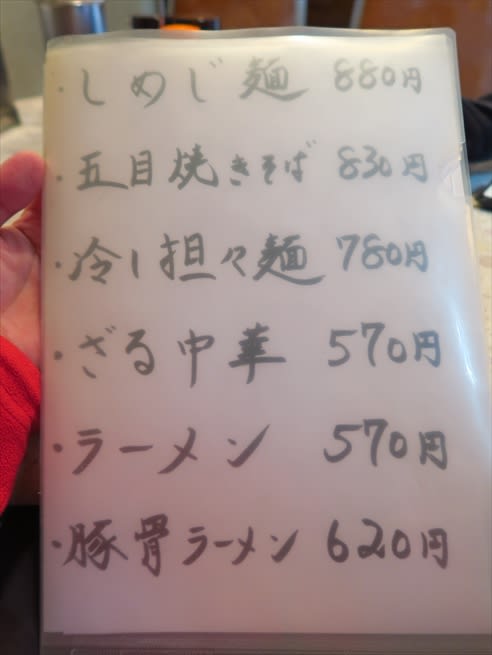 ・しめじ麺 880円
・五目焼きそば 830円
・冷し担々麺 780円
・ざる中華 570円
・ラーメン 570円
・豚骨ラーメン 620円